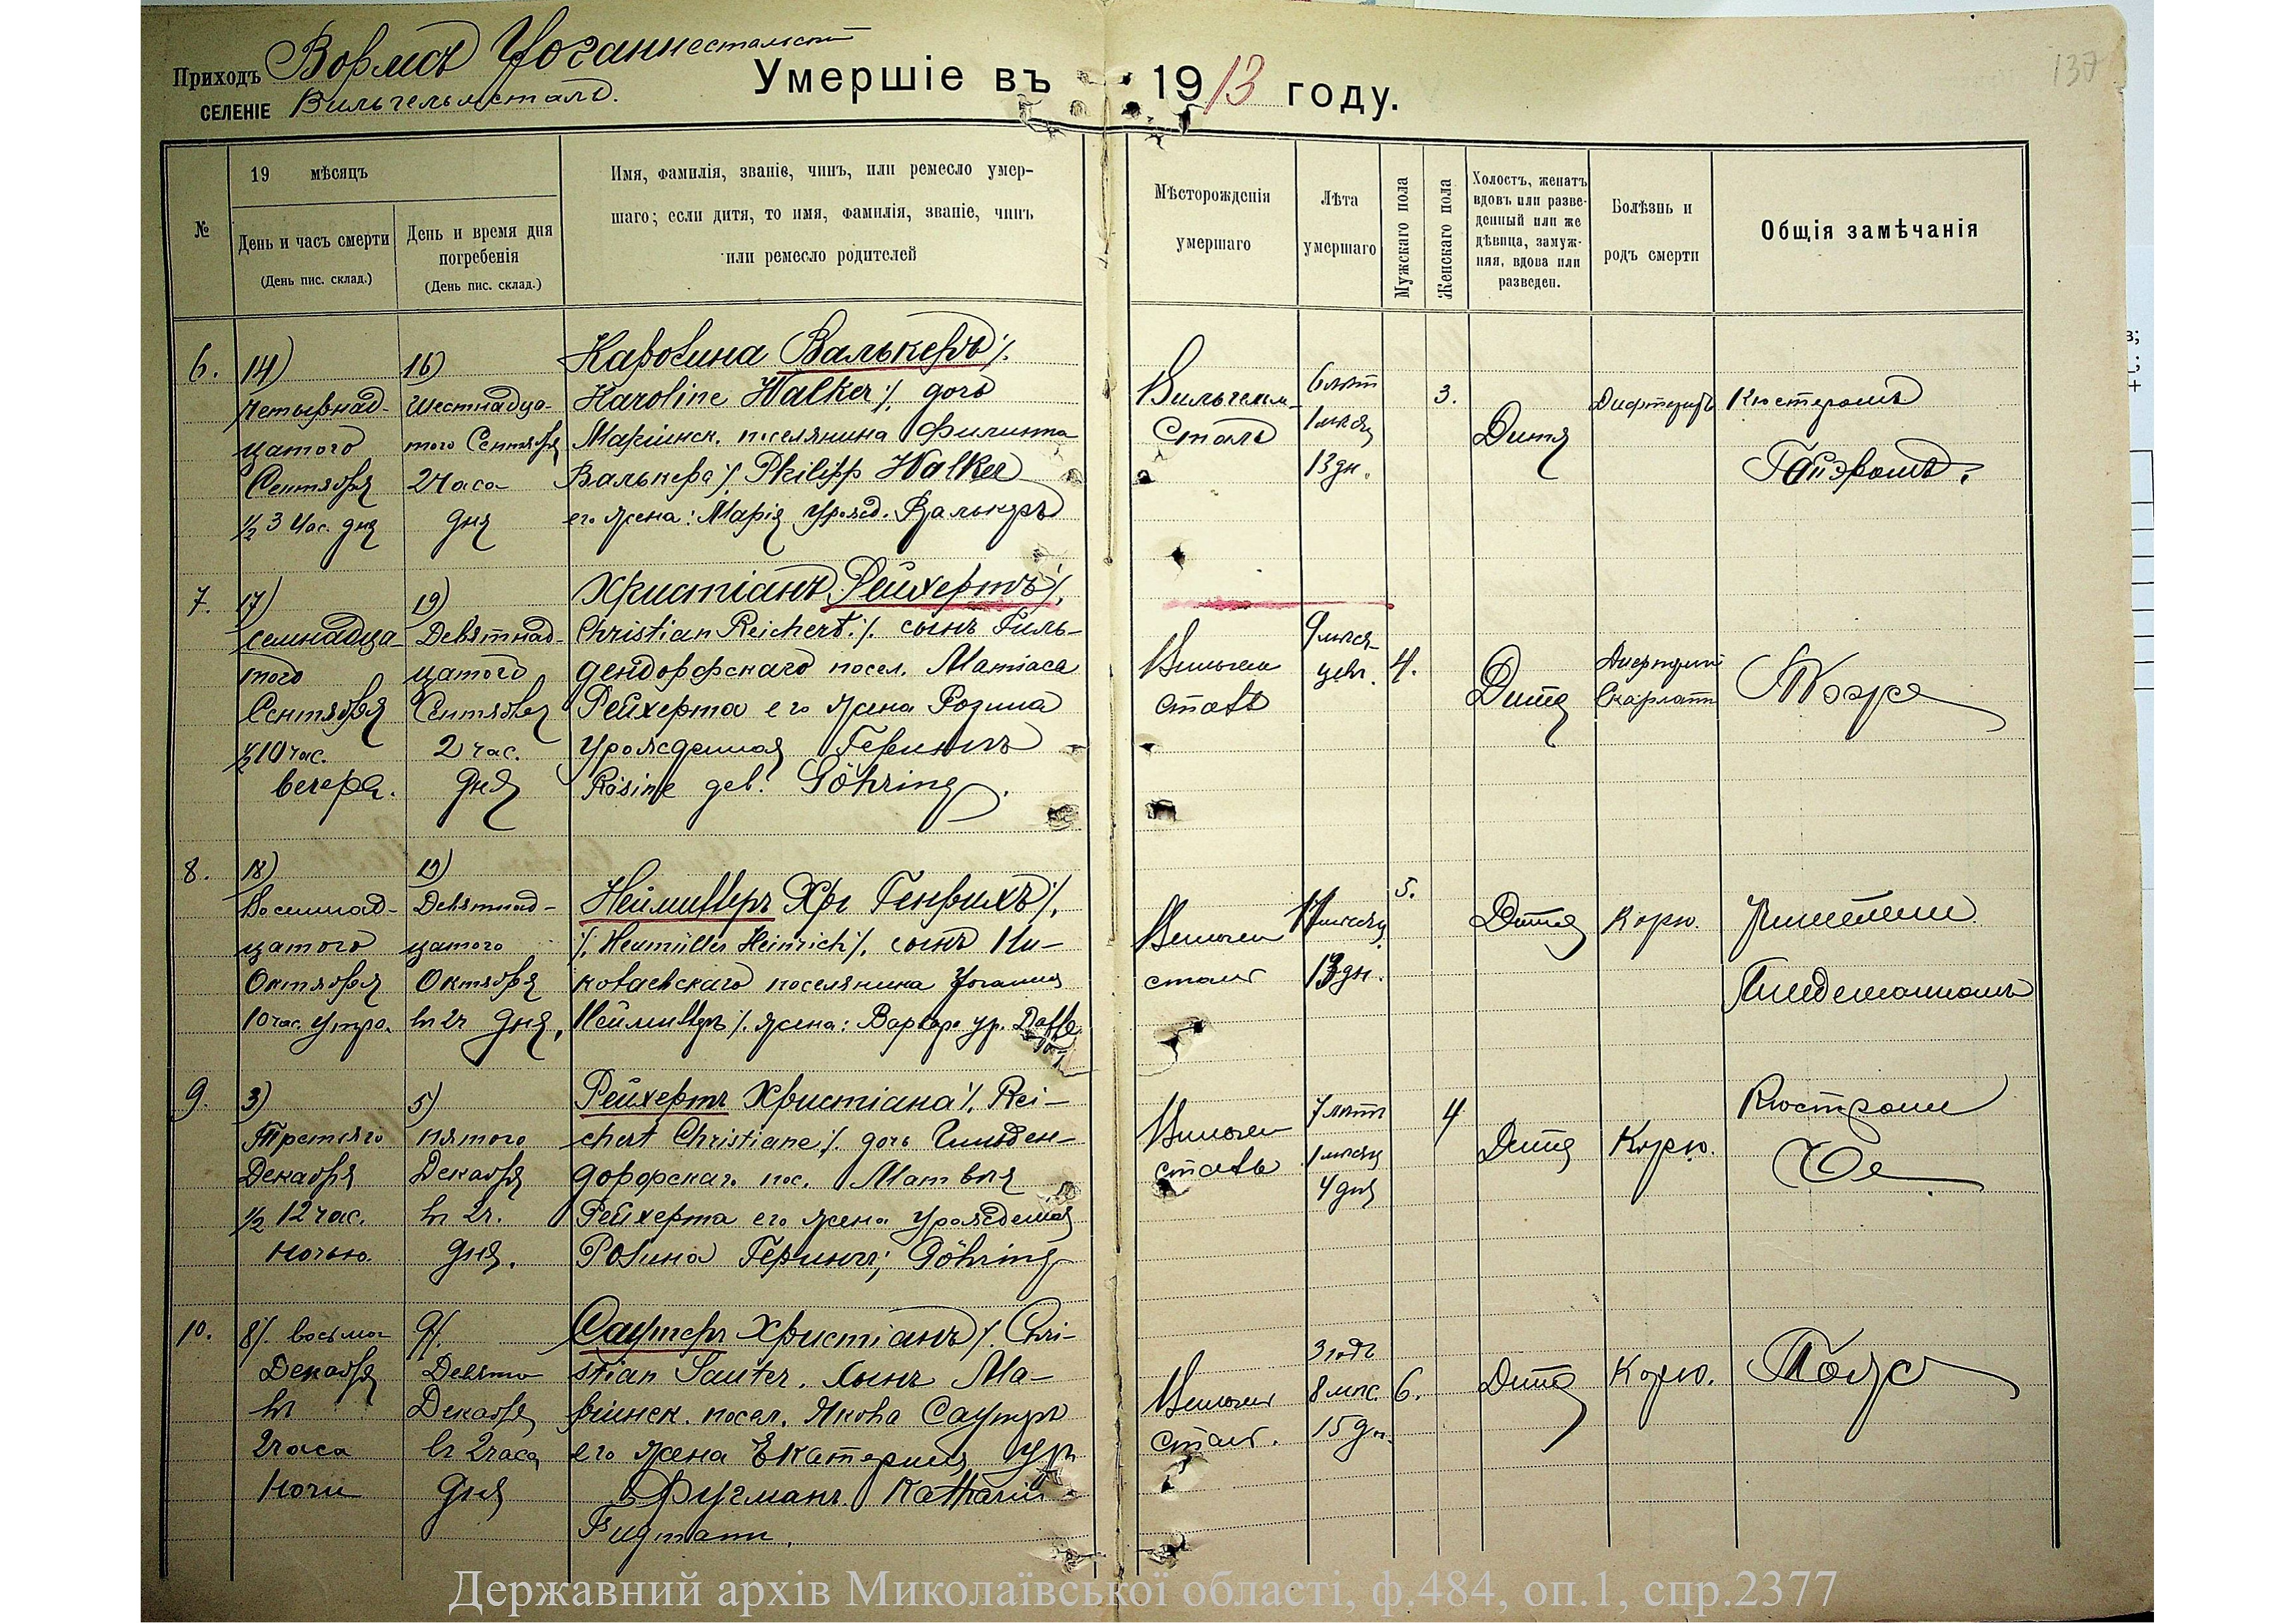 Приходъ Вормсъ Іоганнестальскій
СЕЛЕНІЕ Вильгельмсталь.
Умершіе въ 1913 году.
137
№
19 мѣсяцъ
День и часъ смерти
(День пис. склад.)
День и время дня
погребенія
(День пис. склад.)
Имя, фамилія, званіе, чинъ, или ремесло умер-
шаго; если дитя, то имя, фамилія, званіе, чинъ
или ремесло родителей
Мѣсторожденія
умершаго
Лѣта
умершаго
Мужскаго пола
Женскаго пола
Холостъ, женатъ
вдовъ или разве-
денный или же
дѣвица, замуж-
няя, вдова или
разведен.
Болѣзнь и
родъ смерти
Общія замѣчанія
6.
14)
Четырнад-
цатого
Сентября
½ 3 час. дня
16)
Шестнадца-
того Сентября
2 часа
дня
Каролина Валькеръ ⁒
Karoline Walker ⁒ дочь
Маріинск. поселянина Филиппа
Валькера ⁒ Philipp Walker
его жена: Марія урожд. Валькеръ
Вильгельм-
сталь
6 лѣт
1 мѣсяц
13 дн.
3.
Дитя
Дифтеритъ
Кистеромъ
7.
17)
Семнадца-
того
Сентября
½10 час.
вечера.
19)
Девятнад-
цатого
Сентября
2 час.
дня
Христіанъ Рейхертъ ⁒
Christian Reichert ⁒ сынъ Гиль-
дендорфскаго посел. Матіаса
Рейхерта его жена Розина
урожденная Герингъ
Rosine geb. Göhring.
Вильгельм
сталь
9 мѣся-
цевъ.
4.
Дитя
Дифтерит
Скарлат
8.
18)
Восемнад-
цатого
Октября
10 час. утра.
19)
Девятнад-
цатого
Октября
въ 2 ч дня.
Неймиллеръ Хр Генрихъ ⁒
⁒ Neumüller Heinrich ⁒ сынъ Ни-
колаевскаго поселянина Іоганна
Неймиллеръ ⁒ жена: Варвар. ур.
Вильгельм
сталь
11 мѣсяц
13 дн.
5.
Дитя
Корю.
9.
3)
Третьяго
Декабря
½ 12 час.
ночью.
5)
пятого
Декабря
въ 2 ч.
дня.
Рейхертъ Христіана ⁒ Rei-
chert Christiane ⁒ дочь Гильден-
дорфскаг. пос. Матвѣя
Рейхерта его жена урожденая
Розина Герингъ; Göhring
Вильгельм
сталь
7 лѣтъ
1 мѣсяц
4 дня
4
Дитя
Корю.
10.
8⁒ восьмог
Декабря
въ
2 часа
ночи
9⁒
Девято
Декабря
въ 2 часа
дня
Саутеръ Христіанъ ⁒ Chri-
stian Sauter. сынъ Ма-
ріинск. посел. Якова Саутеръ
его жена Екатерина ур
Фугманъ. Katharin
Fugmann.
Вильгельм
сталь.
3 года
8 мѣс.
15 дн.
6.
Дитя
Корю.
Державний архів Миколаївської області, ф.484, оп.1, спр.2377